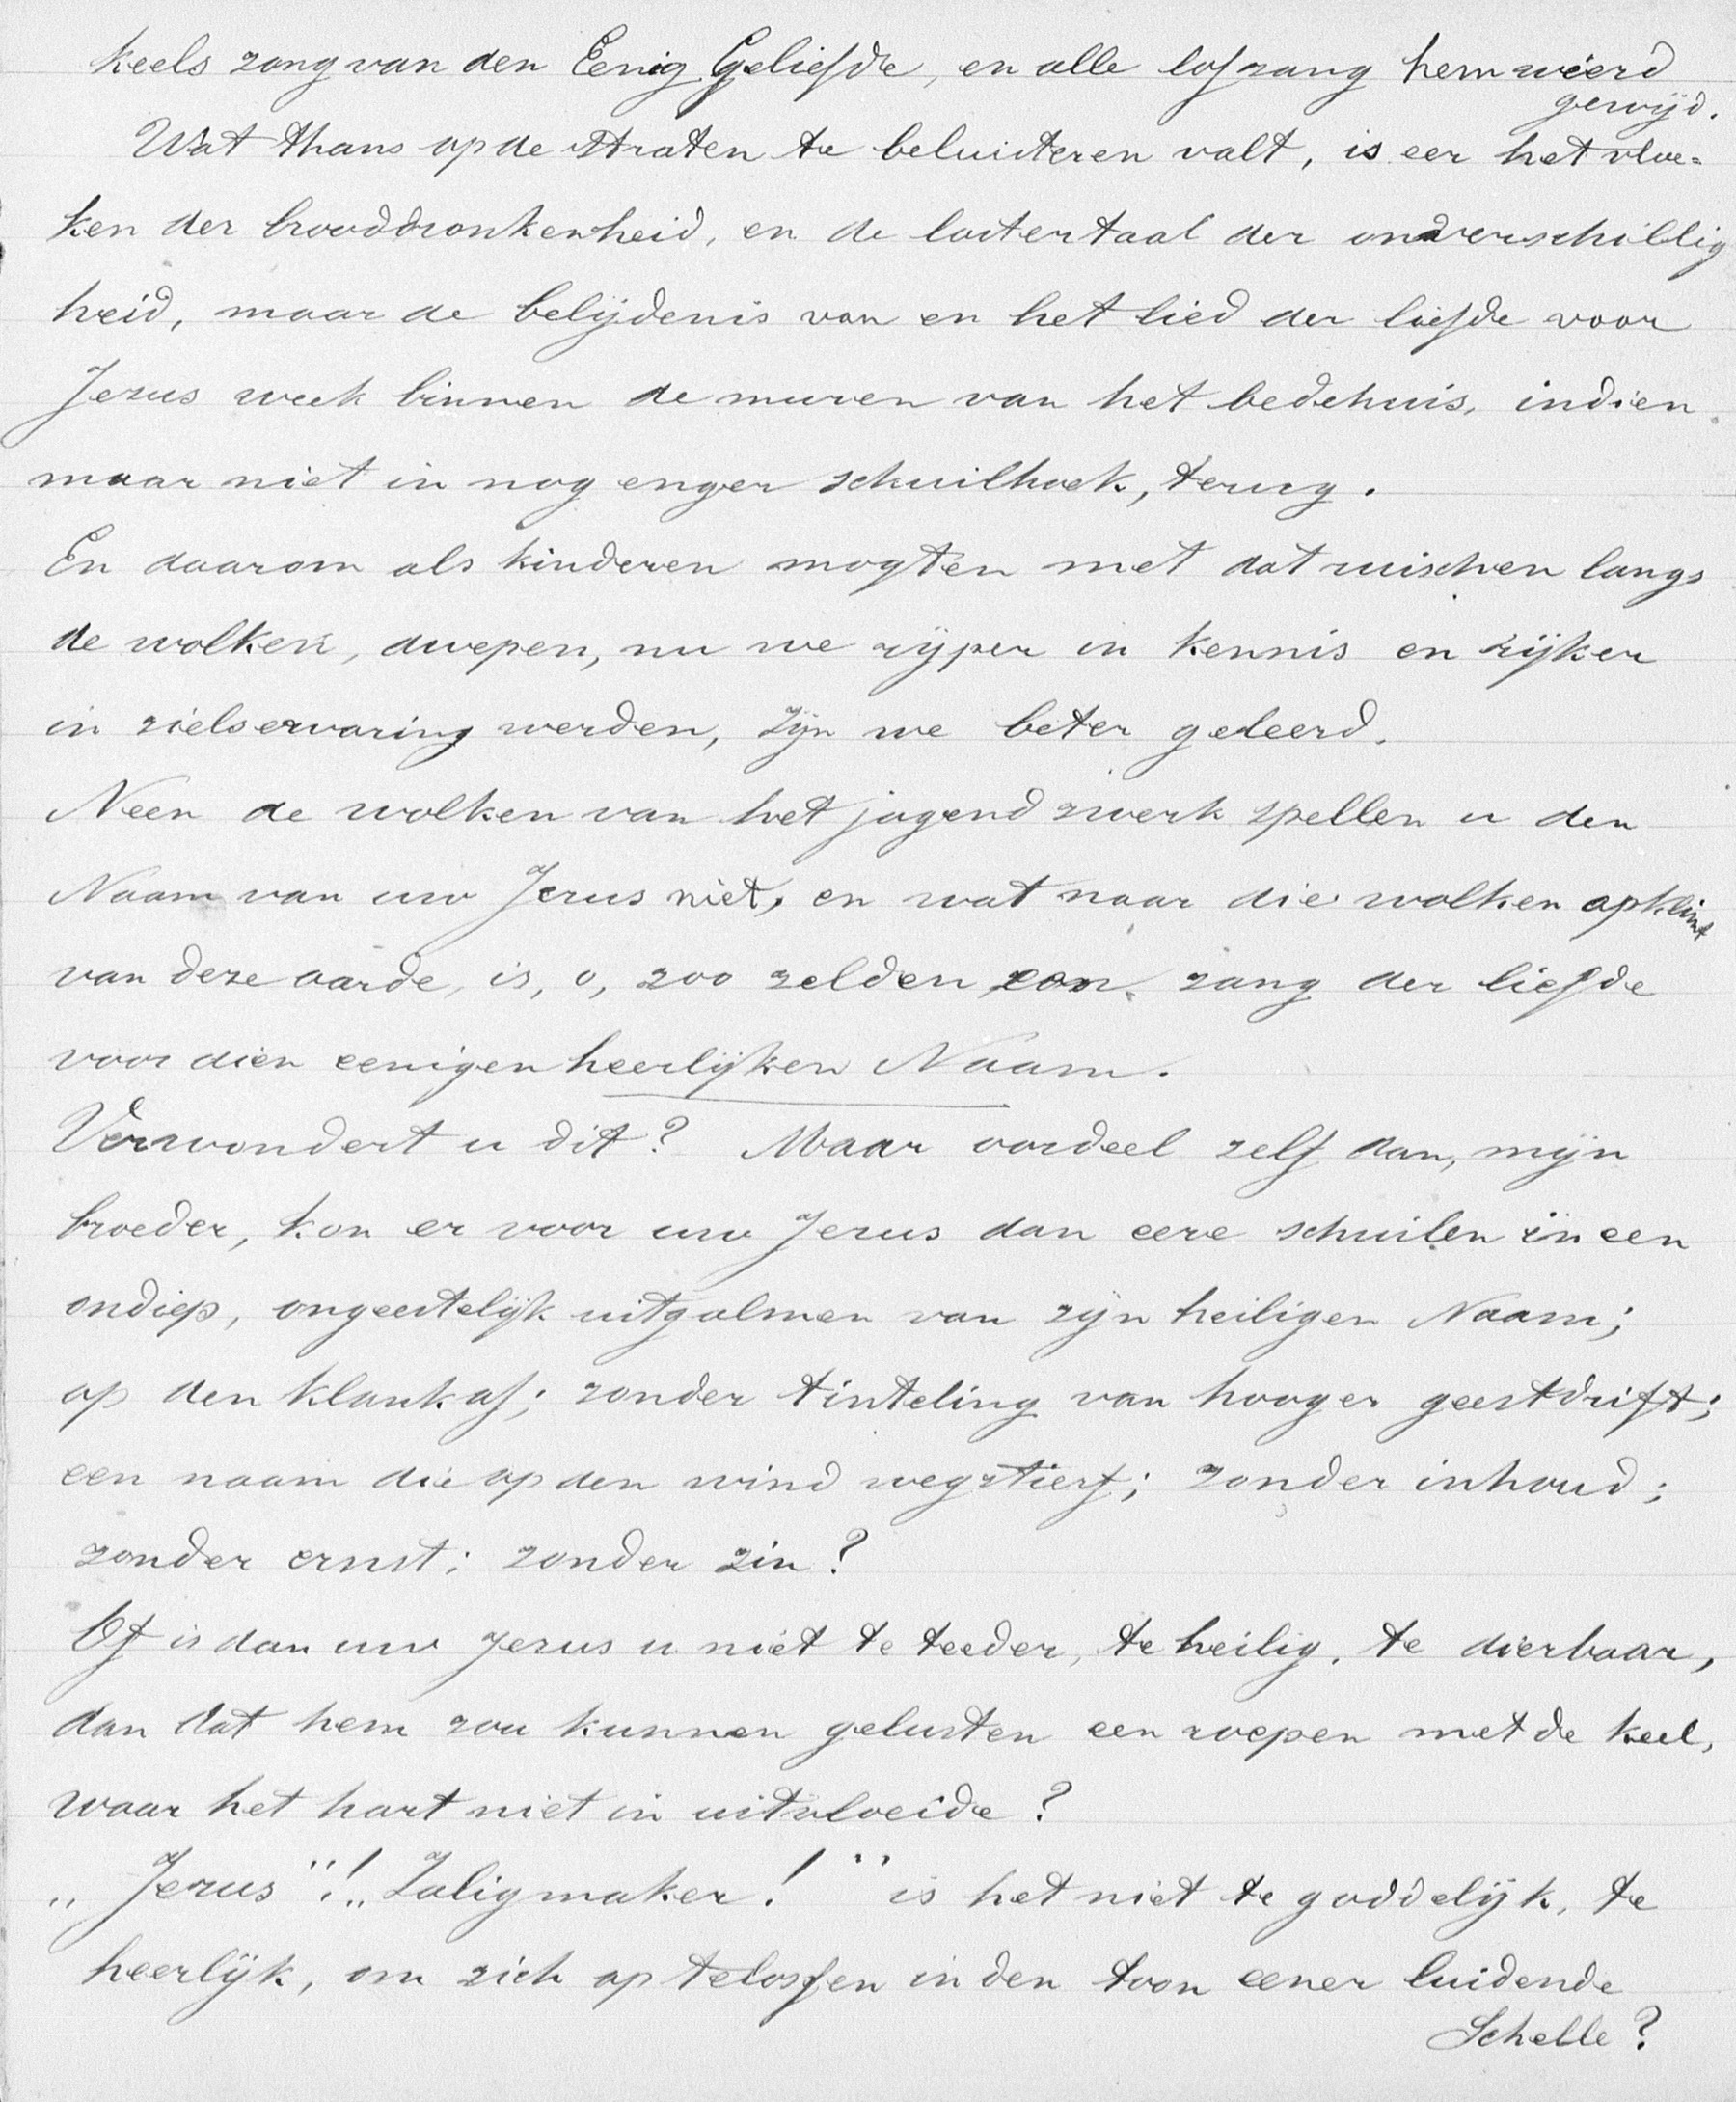 keels zang van den Eenig Geliefde, en alle lofzang hem wierd
gewijd.
Wat thans op de straten te beluisteren valt, is eer het vloe=
ken der brooddronkenheid, en de lastertaal der onverschillig
heid, maar de belijdenis van en het lied der liefde voor
Jezus week binnen de muren van het bedehuis, indien
maar niet in nog enger schuilhoek, terug.
En daarom als kinderen mogten met dat ruischen langs
de wolken, dwepen, nu we rijper in kennis en rijker
in zielservaring werden, zijn we beter geleerd.
Neen de wolken van het jagend zwerk spellen u den
Naam van uw Jezus niet, en wat naar die wolken opklimt
van deze aarde, is, o, zoo zelden een zang der liefde
voor dien eenigen heerlijken Naam.
Verwondert u dit? Maar oordeel zelf dan, mijn
broeder, kon er voor uw Jezus dan eere schuilen in een
ondiep, ongeestelijk uitgalmen van zijn heiligen Naam;
op den klank af; zonder tinteling van hooger geestdrift;
een naam die op den wind wegstierf; zonder inhoud;
zonder ernst; zonder zin?
Of is dan uw Jezus u niet te teeder, te heilig, te dierbaar,
dan dat hem zou kunnen gelusten een roepen met de keel,
waar het hart niet in uitvloeide?
„Jezus"! „Zaligmaker!" is het niet te goddelijk, te
heerlijk, om zich op te lossen in den toon eener luidende
Schelle?